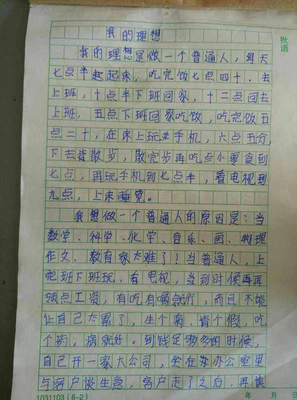 批语
我的理想
我的理想是做一个普通人，每天
七点半起起床，吃完饭七点四十，去
上班，十点半下班回家，十二点回去
上班，五点下班回家吃饭，吃完饭五
点二十，在床上玩玩手机，六点五分
下去遛散步，散完步再吃点小零食到
七点，再玩手机到七点半，看电视到
九点，上床睡觉。
我想做一个普通人的原因是：当
数学、科学、化学、音乐、画、物理
作文、教育家太难了！当普通人，上
完班下班玩，看电视，当到时候再再
领点工资，有吃有喝就行，而且不能
让自己太累了，生个病，肯个假，吃
个药，病就好。到钱足够多的时候，
自己开一家大公司，坐在办办公室里
与客户谈生意，客户走了之后，再
1031103(8-2)
年 月 日